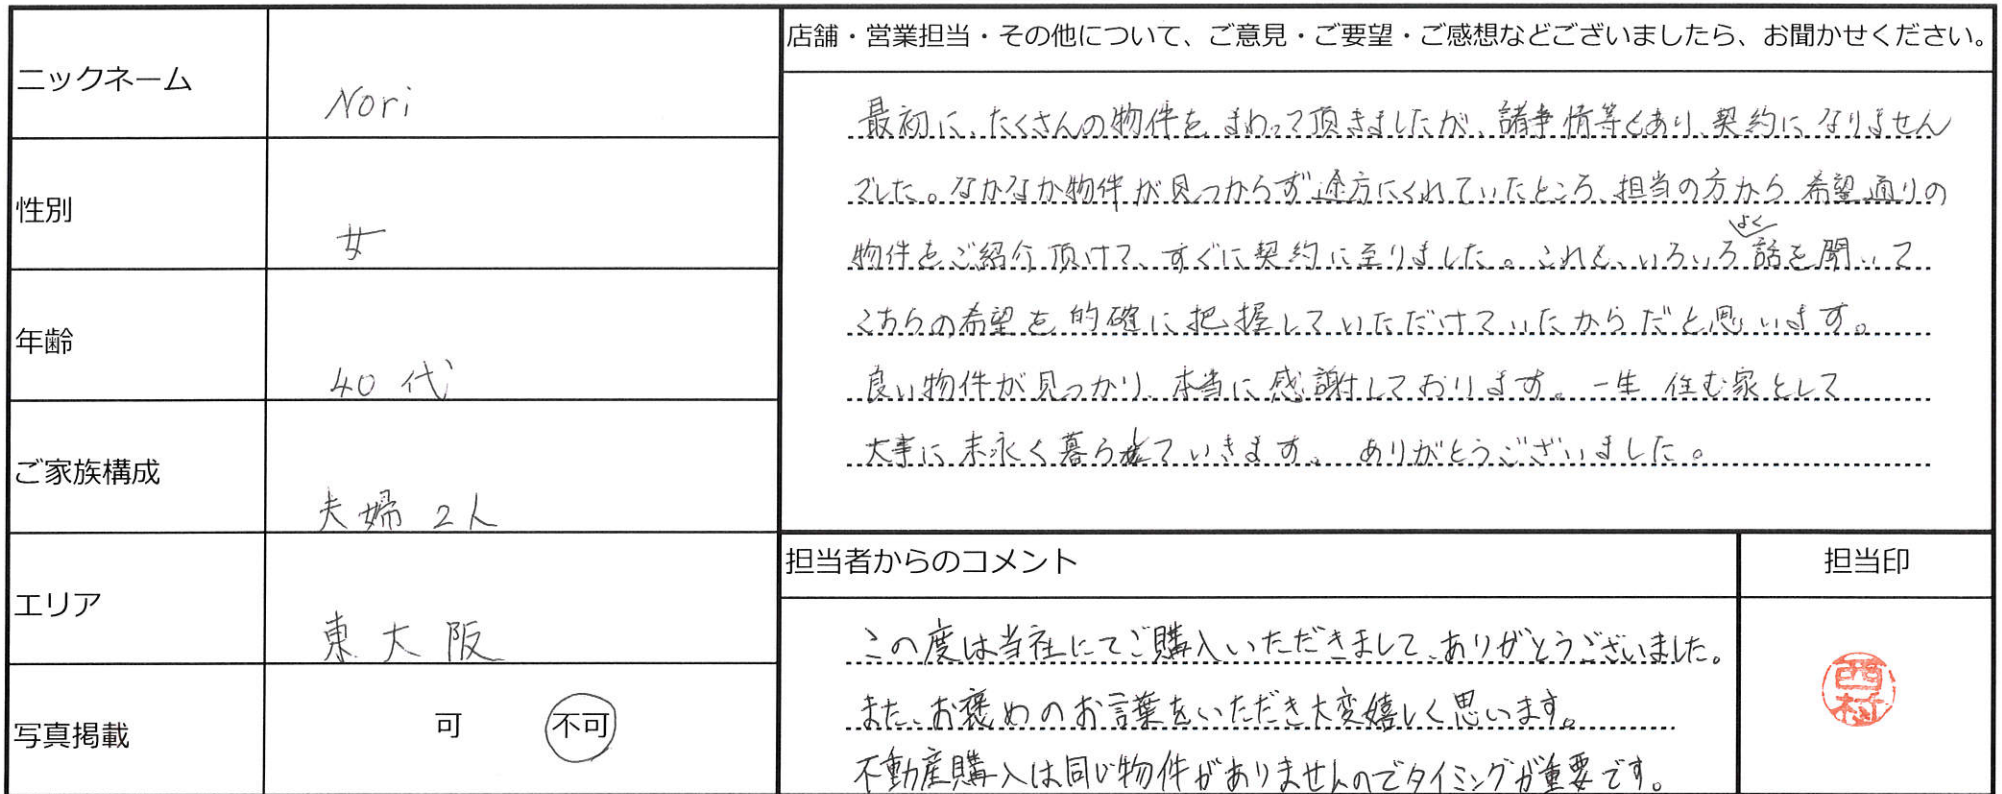 ニックネーム
Nori
性別
女
年齢
40代
ご家族構成
夫婦 2人
エリア
東大阪
写真掲載
可 不可
店舗・営業担当・その他について、ご意見・ご要望・ご感想などございましたら、お聞かせください。
最初に、たくさんの物件をまわって頂きましたが、諸事情等もあり、契約になりません
でした。なかなか物件が見つからず途方にくれていたところ、担当の方から希望通りの
物件をご紹介頂けて、すぐに契約に至りました。これも、いろいろよく話を聞いて
こちらの希望を的確に把握していただけていたからだと思います。
良い物件が見つかり、本当に感謝しております。一生住む家として
大事に末永く暮らしていきます。ありがとうございました。
担当者からのコメント
この度は当社にてご購入いただきまして、ありがとうございました。
また、お褒めのお言葉をいただき大変嬉しく思います。
不動産購入は同じ物件がありませんのでタイミングが重要です。
担当印
西村